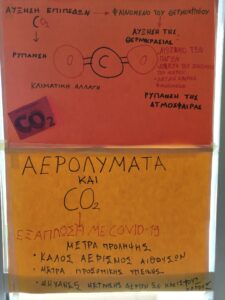 ΑΥΞΗΣΗ ΕΠΙΠΕΔΩΝ → ΦΑΙΝΟΜΕΝΟ ΤΟΥ ΘΕΡΜΟΚΗΠΙΟΥ
CO₂
ΑΥΞΗΣΗ ΤΗΣ
ΘΕΡΜΟΚΡΑΣΙΑΣ
ΡΥΠΑΝΣΗ
O C O
ΚΛΙΜΑΤΙΚΗ ΑΛΛΑΓΗ
ΡΥΠΑΝΣΗ ΤΗΣ
ΑΤΜΟΣΦΑΙΡΑΣ
CO₂
ΑΕΡΟΛΥΜΑΤΑ
ΚΑΙ
CO₂
ΕΞΑΠΛΩΣΗ ΜΕ COVID-19
ΜΕΤΡΑ ΠΡΟΛΗΨΗΣ
• ΚΑΛΟΣ ΑΕΡΙΣΜΟΣ ΑΙΘΟΥΣΩΝ
• ΜΕΤΡΑ ΠΡΟΣΩΠΙΚΗΣ ΥΓΙΕΙΝΗΣ